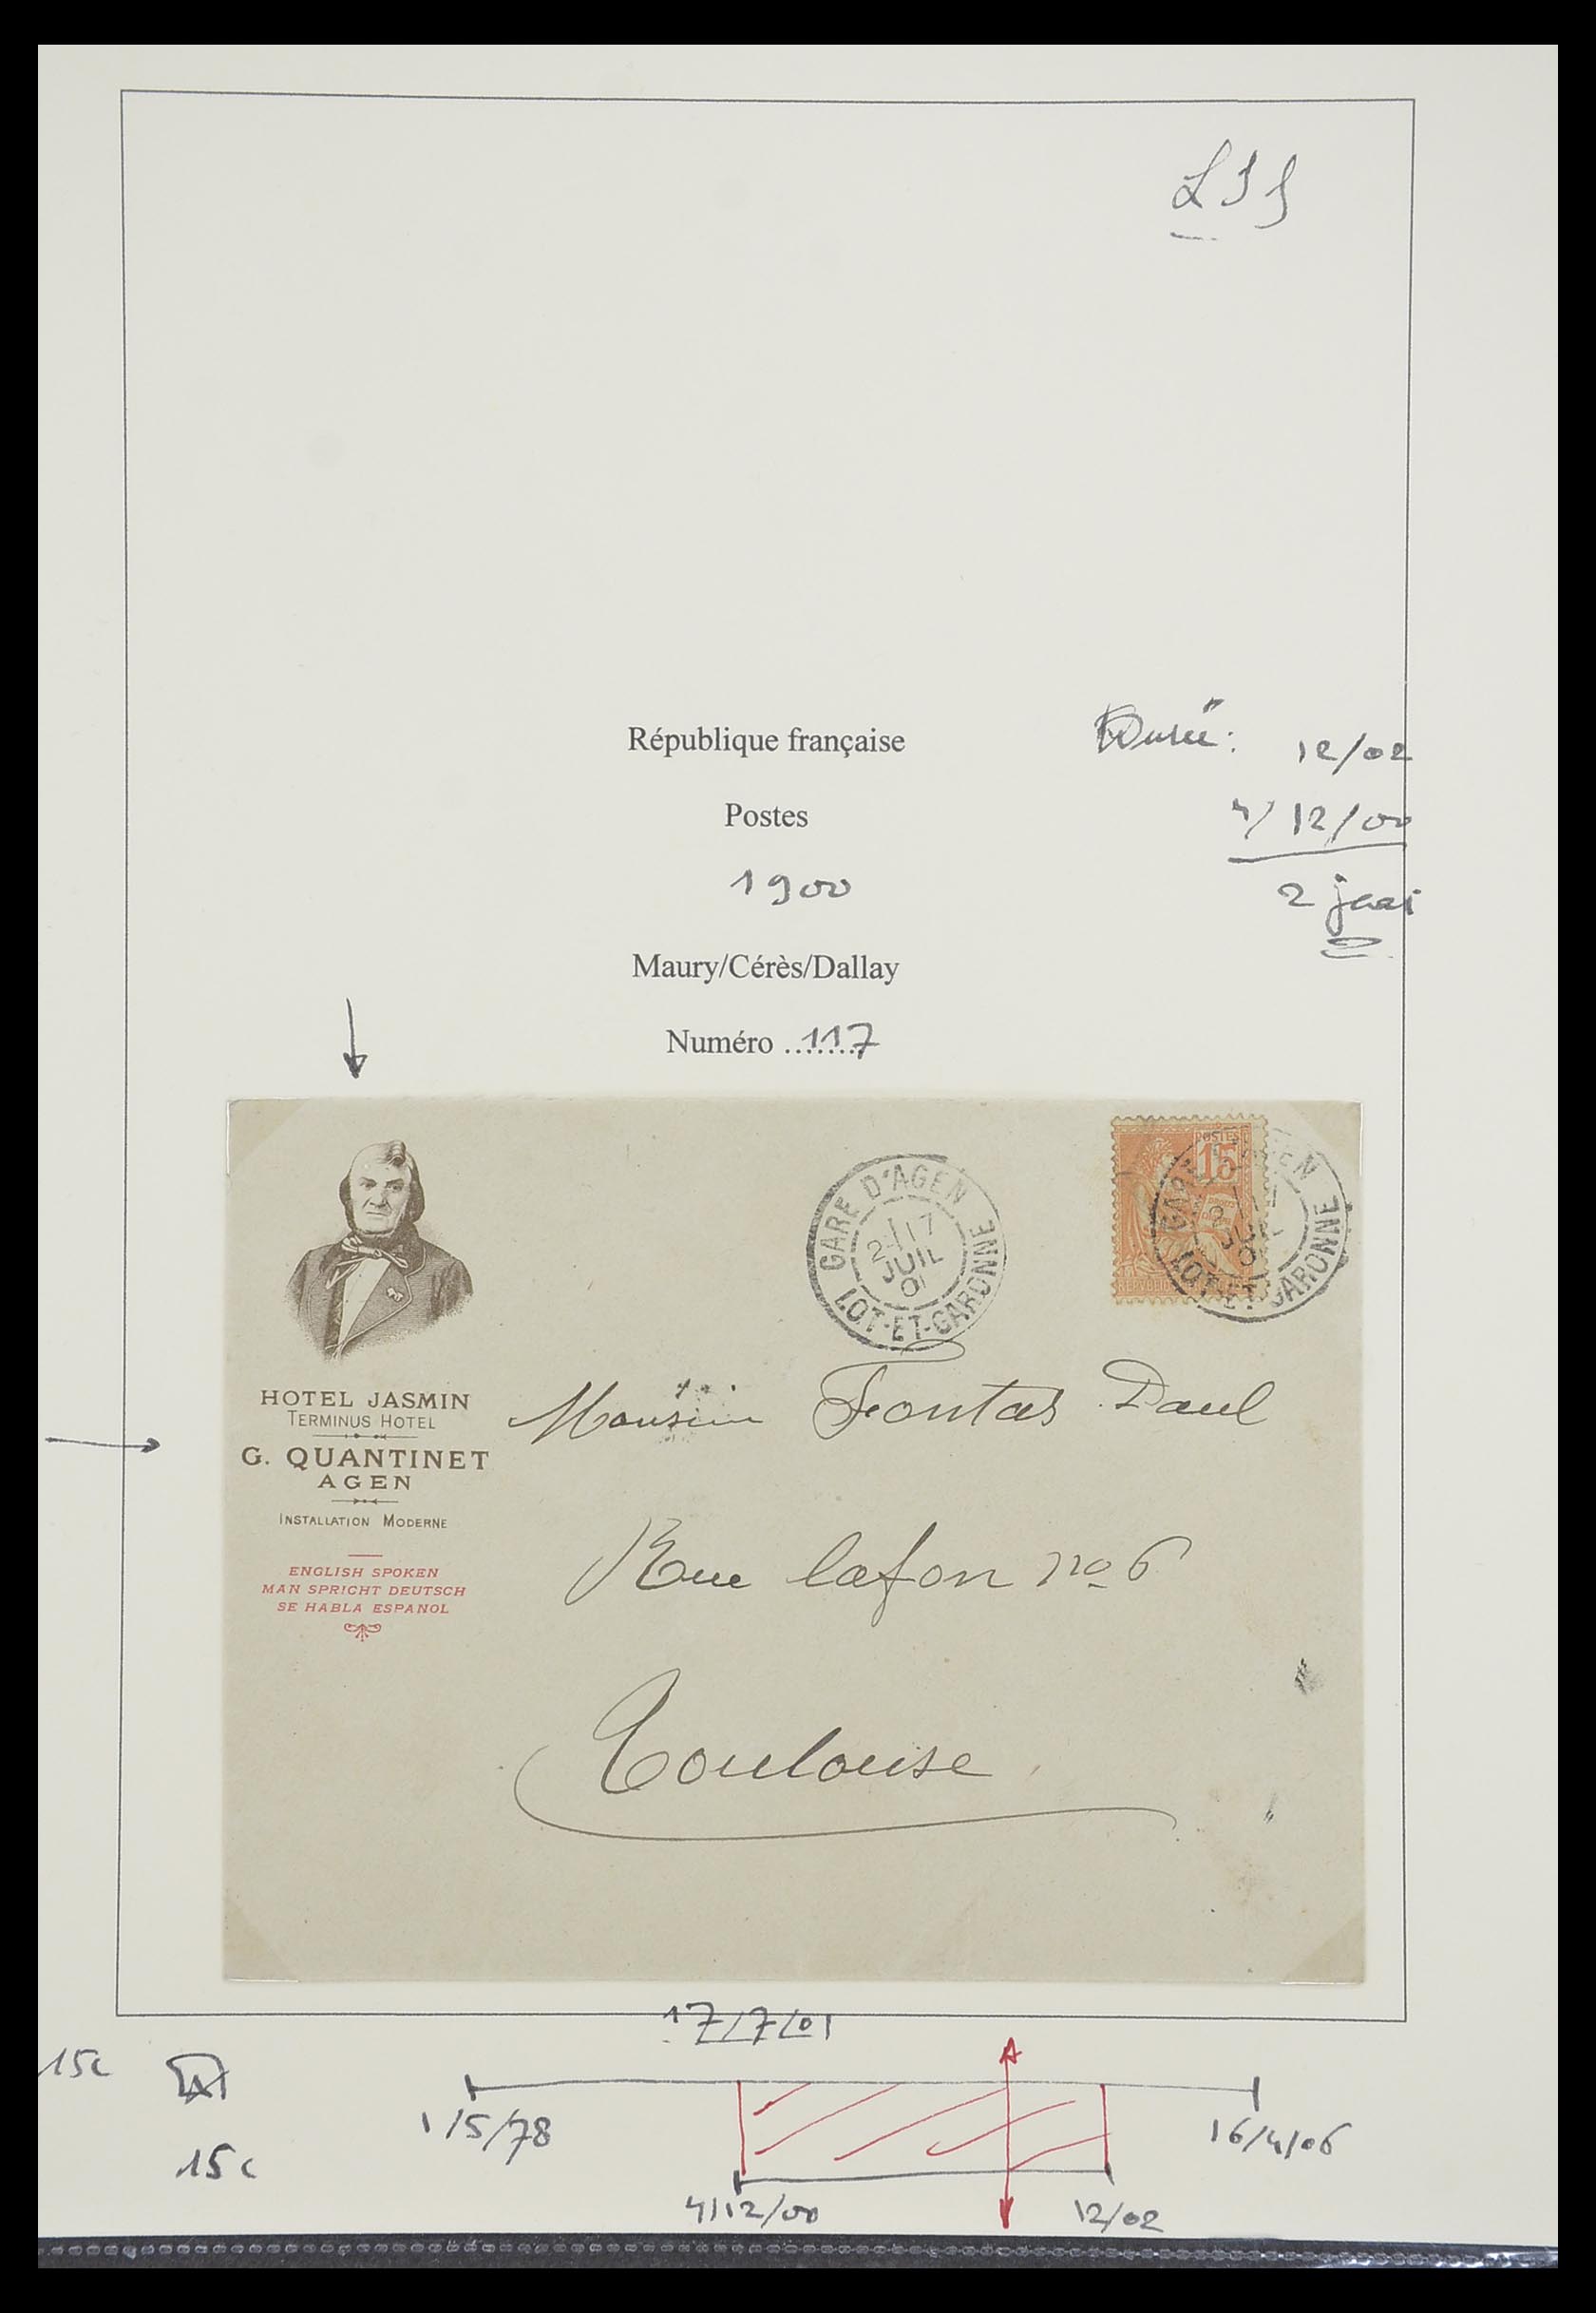 République française
Durée: 12/02
Postes
4/12/00
1900
2 jaar
Maury/Cérès/Dallay
Numéro ....... 117
GARE D'AGEN
17
JUIL
01
LOT-ET-GARONNE
POSTES
15
LOT-ET-GARONNE
HOTEL JASMIN
TERMINUS HOTEL
G. QUANTINET
AGEN
INSTALLATION MODERNE
ENGLISH SPOKEN
MAN SPRICHT DEUTSCH
SE HABLA ESPANOL
Monsieur Fontas Paul
Rue lafon no 6
Toulouse
17/7/01
15c
1/5/78
16/4/06
15c
4/12/00
12/02